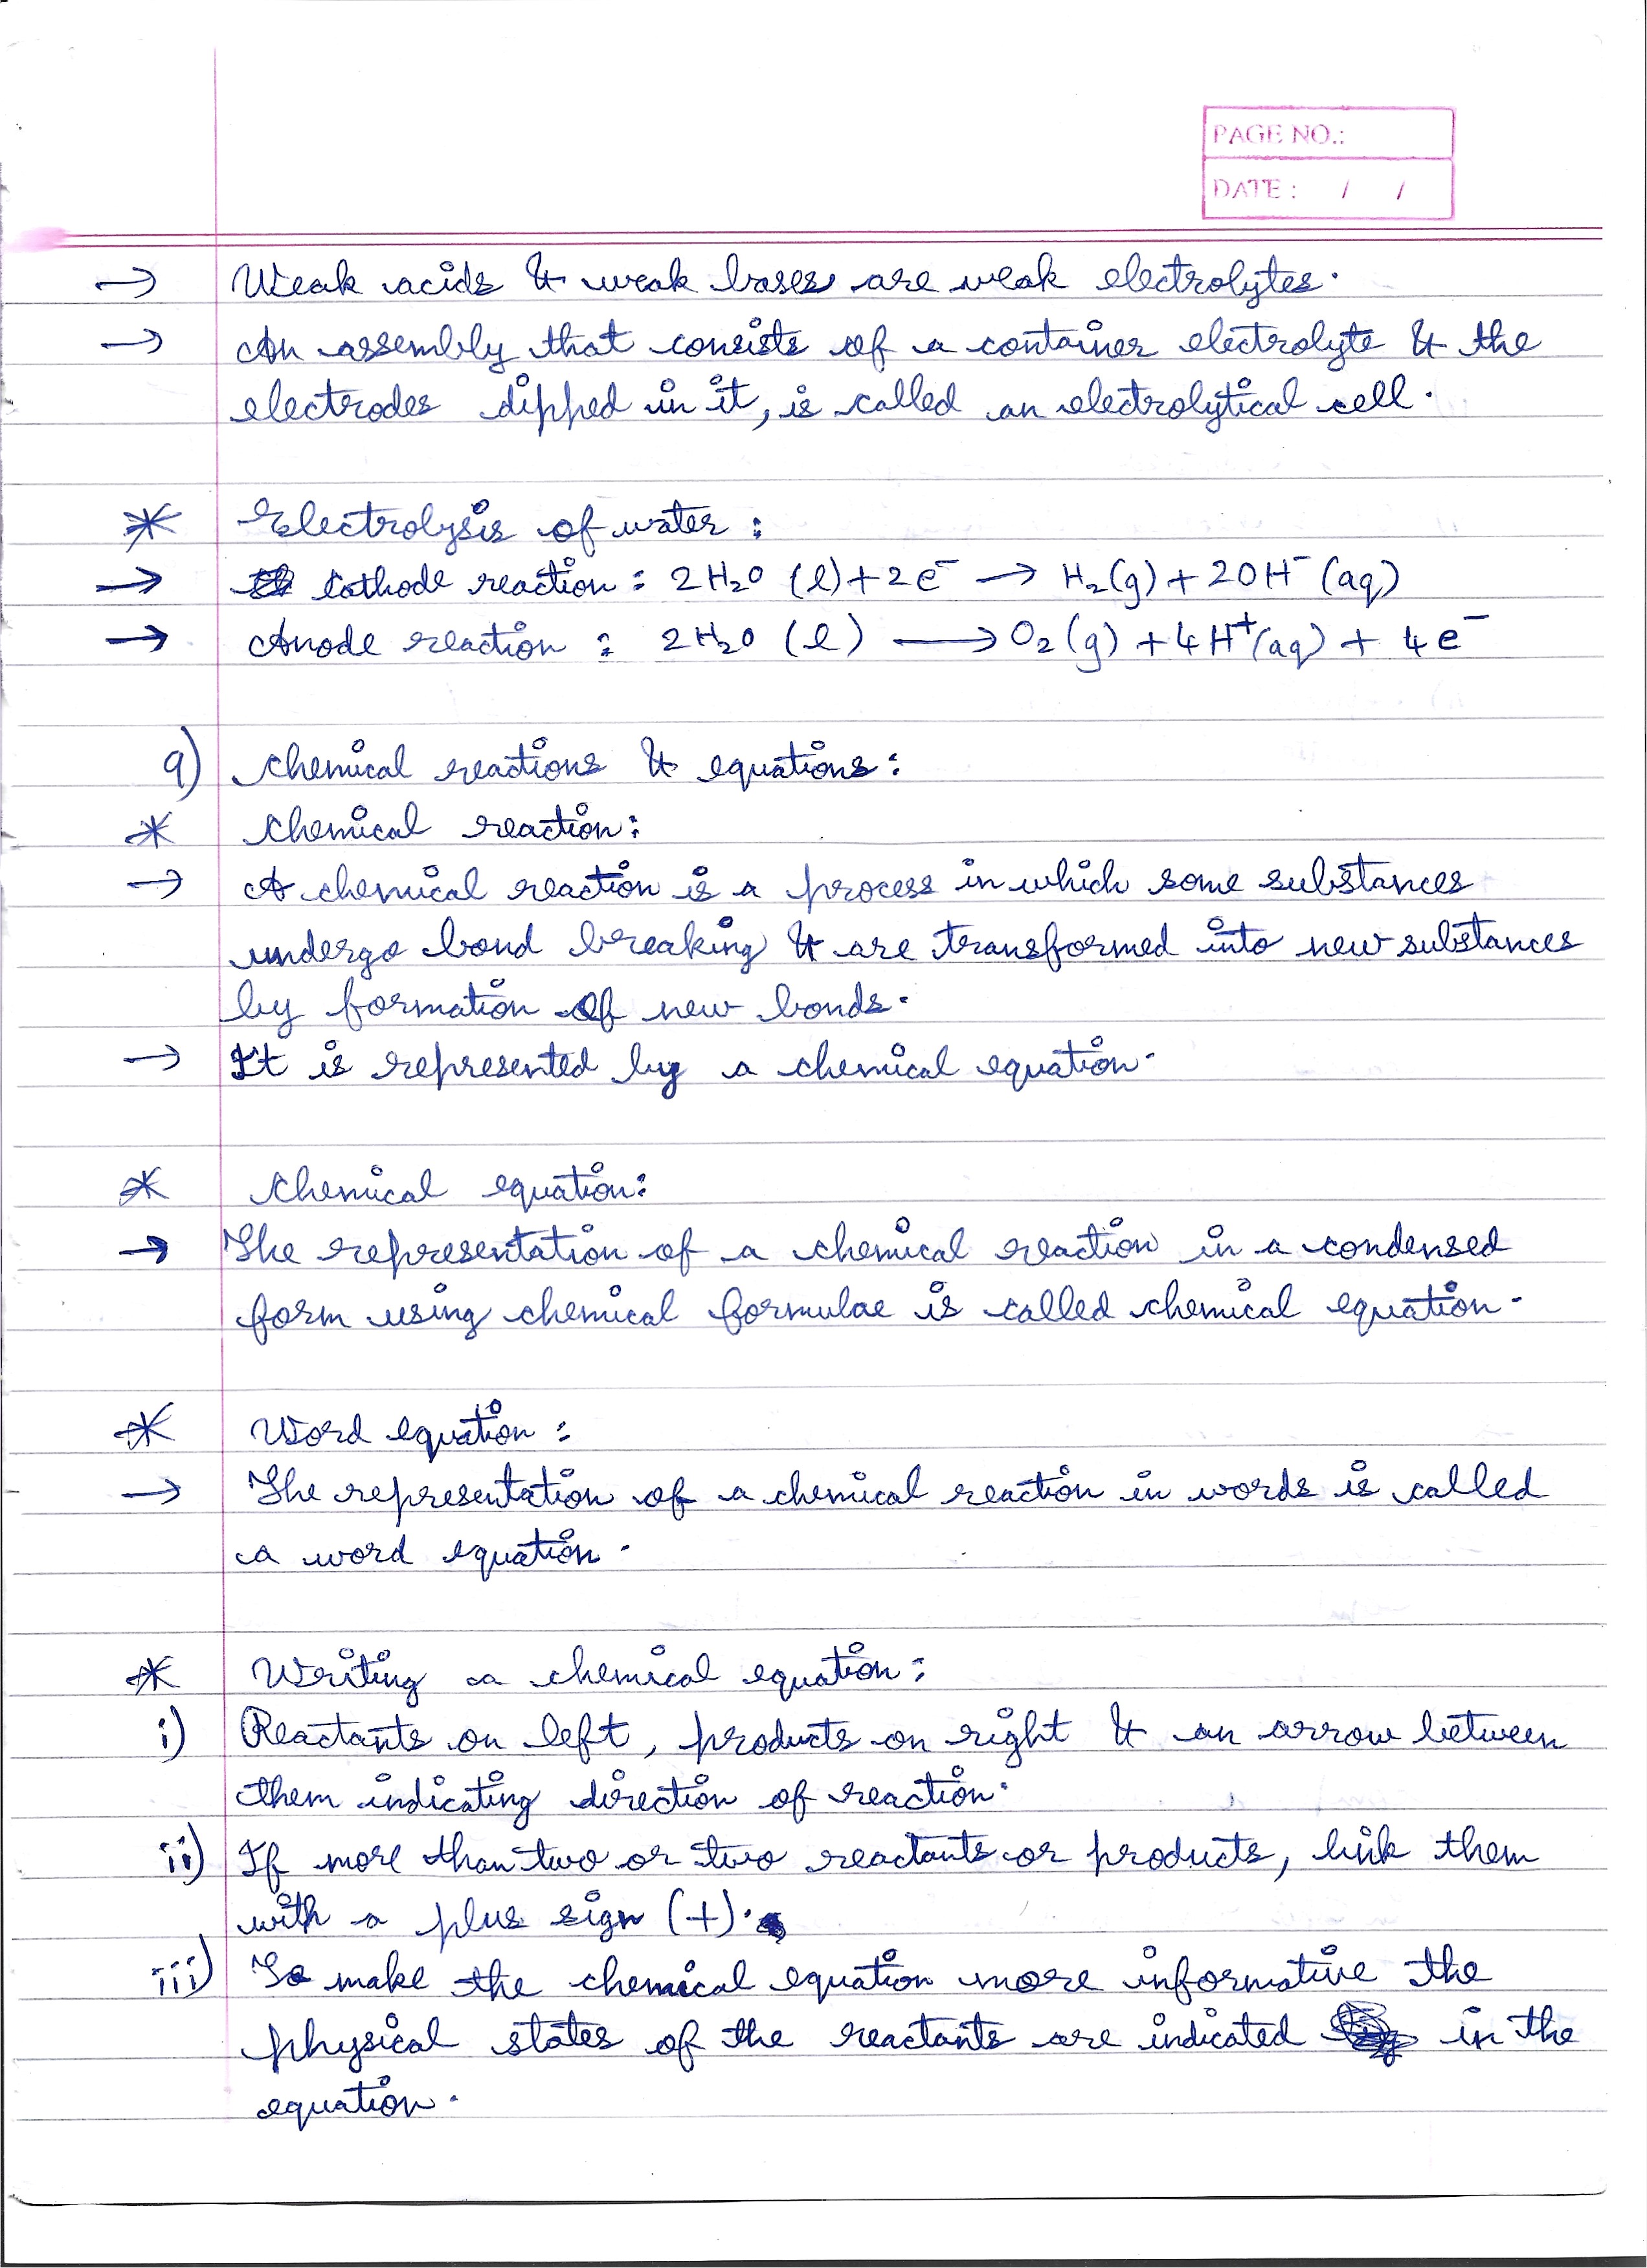 PAGE NO.:
DATE: / /
→ Weak acids & weak bases are weak electrolytes.
→ An assembly that consists of a container electrolyte & the
electrodes dipped in it, is called an electrolytical cell.
* Electrolysis of water :
→ Cathode reaction : 2H₂O (l) + 2e⁻ → H₂(g) + 2OH⁻ (aq)
→ Anode reaction : 2H₂O (l) → O₂(g) + 4H⁺(aq) + 4e⁻
9) Chemical reactions & equations :
* Chemical reaction :
→ A chemical reaction is a process in which some substances
undergo bond breaking & are transformed into new substances
by formation of new bonds.
→ It is represented by a chemical equation.
* Chemical equation :
→ The representation of a chemical reaction in a condensed
form using chemical formulae is called chemical equation.
* Word equation :
→ The representation of a chemical reaction in words is called
a word equation.
* Writing a chemical equation :
i) Reactants on left, products on right & an arrow between
them indicating direction of reaction.
ii) If more than two or two reactants or products, link them
with a plus sign (+).
iii) To make the chemical equation more informative the
physical states of the reactants are indicated in the
equation.